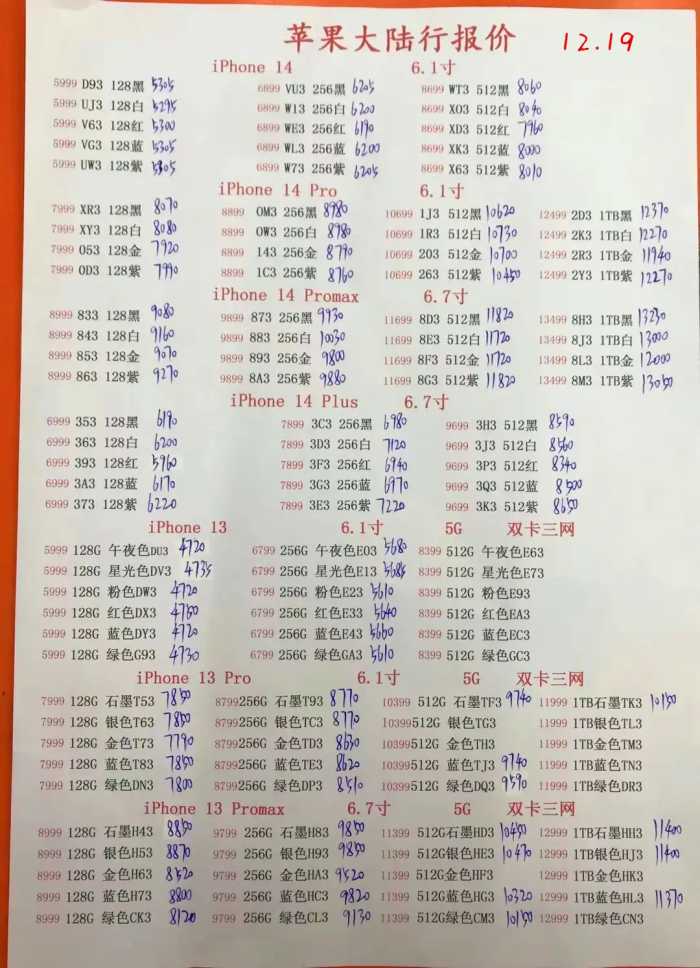 苹果大陆行报价 12.19
iPhone 14 6.1寸
5999 D93 128黑 5305 6899 VU3 256黑 6205 8699 WT3 512黑 8060
5999 UJ3 128白 5295 6899 W13 256白 6200 8699 XO3 512白 8040
5999 V63 128红 5300 6899 WE3 256红 6190 8699 XD3 512红 7960
5999 VG3 128蓝 5305 6899 WL3 256蓝 6200 8699 XK3 512蓝 8000
5999 UW3 128紫 5305 6899 W73 256紫 6205 8699 X63 512紫 8010
iPhone 14 Pro 6.1寸
7999 XR3 128黑 8070 8899 OM3 256黑 8980 10699 1J3 512黑 10620 12499 2D3 1TB黑 12370
7999 XY3 128白 8080 8899 OW3 256白 8980 10699 1R3 512白 10730 12499 2K3 1TB白 12270
7999 053 128金 7920 8899 143 256金 8790 10699 203 512金 10700 12499 2R3 1TB金 11940
7999 0D3 128紫 7990 8899 1C3 256紫 8760 10699 263 512紫 10450 12499 2Y3 1TB紫 12270
iPhone 14 Promax 6.7寸
8999 833 128黑 9080 9899 873 256黑 9930 11699 8D3 512黑 11820 13499 8H3 1TB黑 13230
8999 843 128白 9160 9899 883 256白 10030 11699 8E3 512白 11720 13499 8J3 1TB白 13000
8999 853 128金 9070 9899 893 256金 9800 11699 8F3 512金 11720 13499 8L3 1TB金 12000
8999 863 128紫 9270 9899 8A3 256紫 9880 11699 8G3 512紫 11820 13499 8M3 1TB紫 13050
iPhone 14 Plus 6.7寸
6999 353 128黑 6190 7899 3C3 256黑 6980 9699 3H3 512黑 8590
6999 363 128白 6200 7899 3D3 256白 7120 9699 3J3 512白 8560
6999 393 128红 5960 7899 3F3 256红 6940 9699 3P3 512红 8340
6999 3A3 128蓝 6170 7899 3G3 256蓝 6970 9699 3Q3 512蓝 8500
6999 373 128紫 6220 7899 3E3 256紫 7220 9699 3K3 512紫 8650
iPhone 13 6.1寸 5G 双卡三网
5999 128G 午夜色DU3 4720 6799 256G 午夜色E03 5680 8399 512G 午夜色E63
5999 128G 星光色DV3 4735 6799 256G 星光色E13 5685 8399 512G 星光色E73
5999 128G 粉色DW3 4720 6799 256G 粉色E23 5610 8399 512G 粉色E93
5999 128G 红色DX3 4750 6799 256G 红色E33 5640 8399 512G 红色EA3
5999 128G 蓝色DY3 4720 6799 256G 蓝色E43 5660 8399 512G 蓝色EC3
5999 128G 绿色G93 4730 6799 256G 绿色GA3 5610 8399 512G 绿色GC3
iPhone 13 Pro 6.1寸 5G 双卡三网
7999 128G 石墨T53 7850 8799 256G 石墨T93 8770 10399 512G 石墨TF3 9740 11999 1TB石墨TK3 10150
7999 128G 银色T63 7850 8799 256G 银色TC3 8770 10399 512G 银色TG3 11999 1TB银色TL3
7999 128G 金色T73 7790 8799 256G 金色TD3 8630 10399 512G 金色TH3 11999 1TB金色TM3
7999 128G 蓝色T83 7850 8799 256G 蓝色TE3 8620 10399 512G 蓝色TJ3 9740 11999 1TB蓝色TN3
7999 128G 绿色DN3 7800 8799 256G 绿色DP3 8510 10399 512G 绿色DQ3 9590 11999 1TB绿色DR3
iPhone 13 Promax 6.7寸 5G 双卡三网
8999 128G 石墨H43 8850 9799 256G 石墨H83 9850 11399 512G石墨HD3 10450 12999 1TB石墨HH3 11400
8999 128G 银色H53 8870 9799 256G 银色H93 9850 11399 512G银色HE3 10470 12999 1TB银色HJ3 11400
8999 128G 金色H63 8520 9799 256G 金色HA3 9520 11399 512G金色HF3 12999 1TB金色HK3
8999 128G 蓝色H73 8800 9799 256G 蓝色HC3 9820 11399 512G蓝色HG3 10320 12999 1TB蓝色HL3 11370
8999 128G 绿色CK3 8120 9799 256G 绿色CL3 9130 11399 512G绿色CM3 10150 12999 1TB绿色CN3